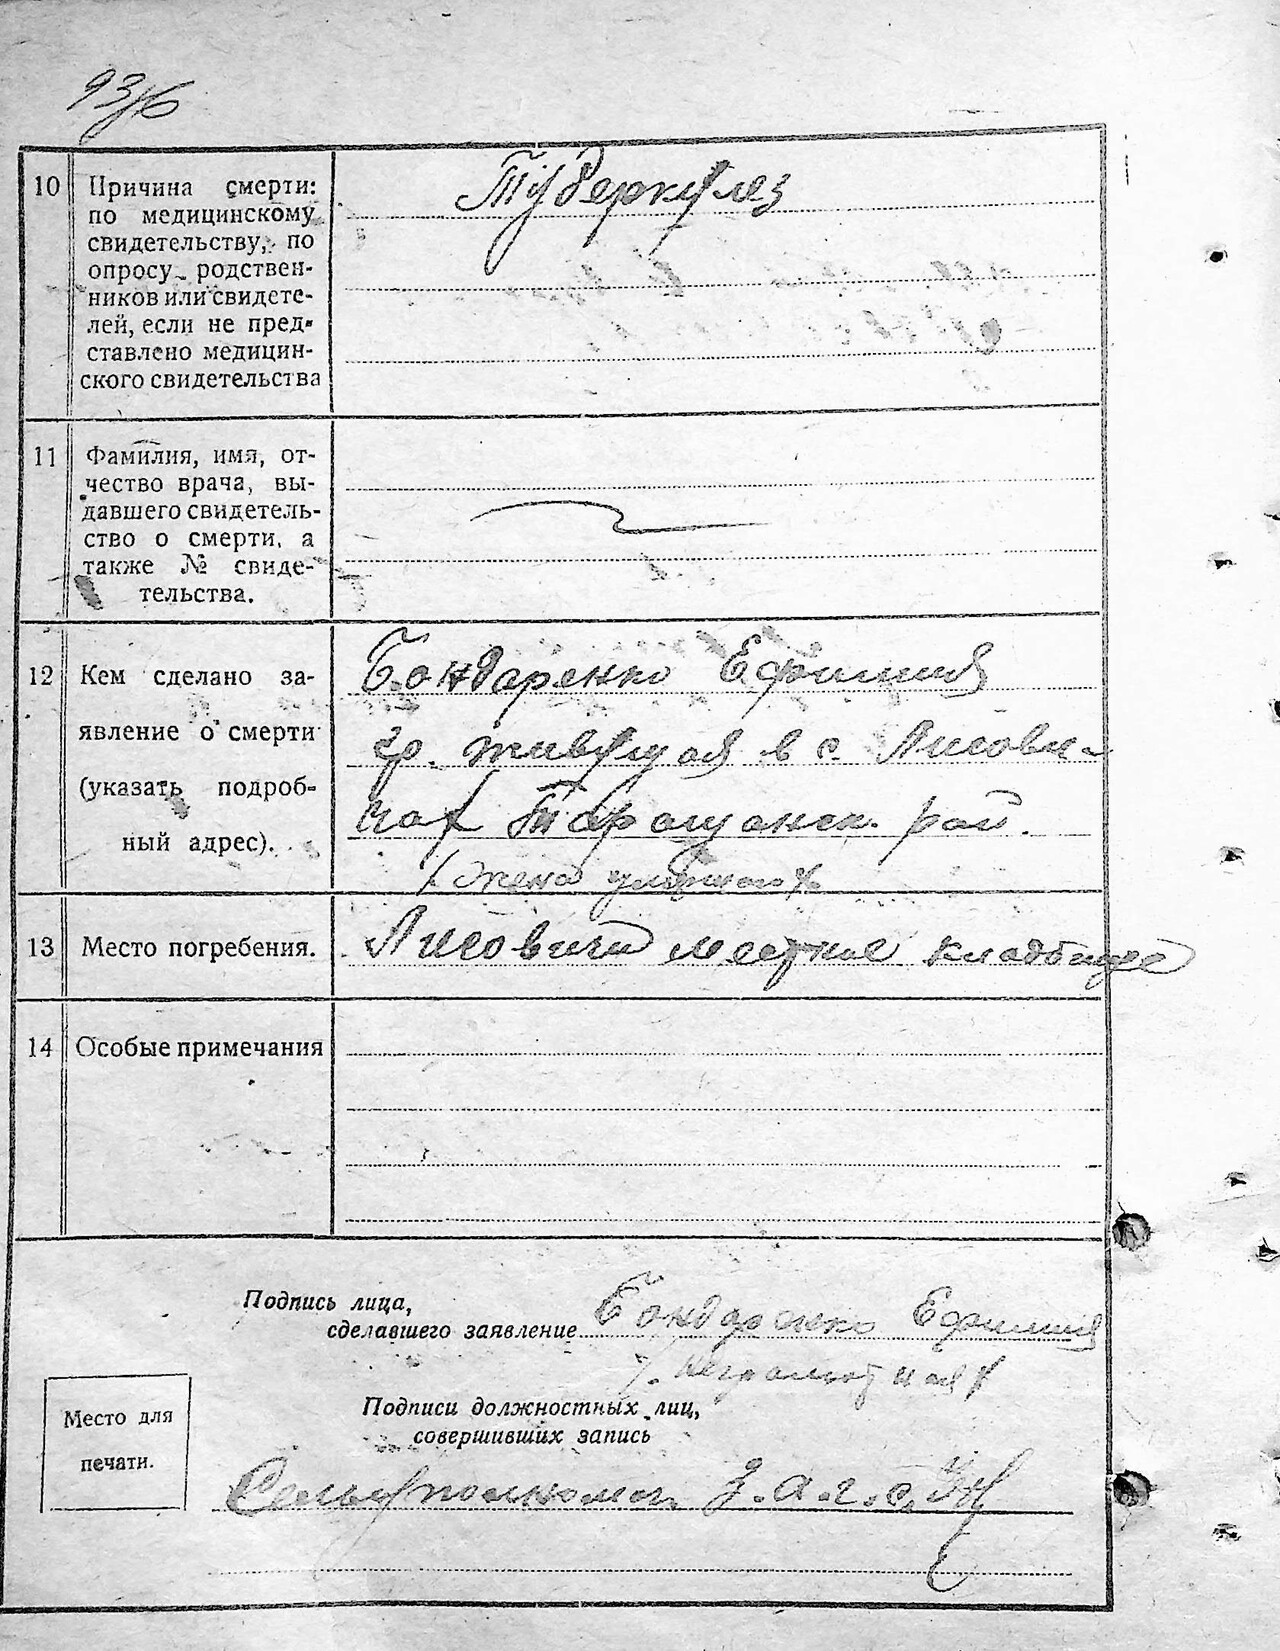 10 Причина смерти:
по медицинскому
свидетельству, по
опросу родствен-
ников или свидете-
лей, если не пред-
ставлено медицин-
ского свидетельства
Туберкулез
11 Фамилия, имя, от-
чество врача, вы-
давшего свидетель-
ство о смерти, а
также № свиде-
тельства.
12 Кем сделано за-
явление о смерти
(указать подроб-
ный адрес).
Бондаренко Ефимия
гр. живущая в с. Лисови-
чах Таращанск. рай.
(жена умершего)
13 Место погребения.
Лисовичи местное кладбище
14 Особые примечания
Подпись лица,
сделавшего заявление Бондаренко Ефимия
(неграмотная)
Подписи должностных лиц,
совершивших запись
Место для
печати.
З.А.Г.С.